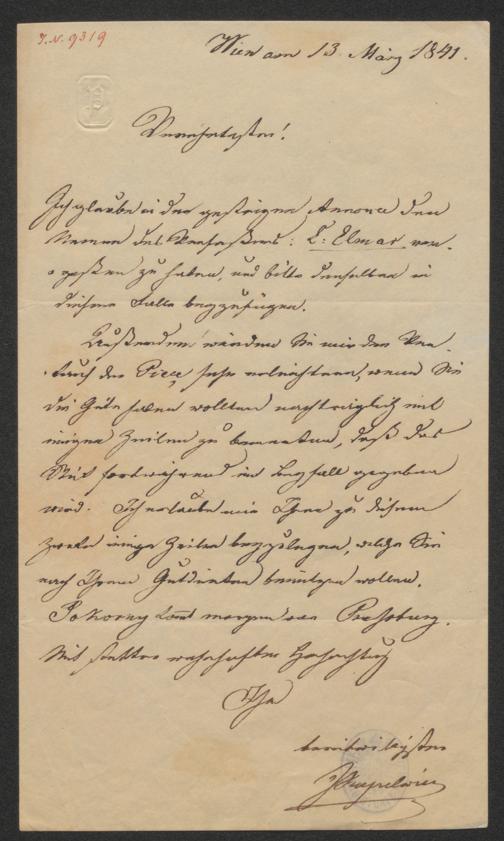 I. N. 9319
Wien am 13. März 1841.
Verehrtester!
Ich glaube in der gestrigen Annonce den
Namen des Verfassers: C: Elmar ver-
gessen zu haben, und bitte denselben in
diesem Falle beyzufügen.
Außerdem würden Sie mir den Ver-
trieb der Piece sehr erleichtern, wenn Sie
die Güte haben wollten nachträglich mit
einigen Zeilen zu bemerken, daß das
Stück fortwährend mit Beyfall gegeben
wird. Ich erlaube mir Ihnen zu diesem
Zwecke einige Zeilen beyzulegen, welche Sie
nach Ihrem Gutdünken benützen wollen.
Pokorny kömt morgen von Preßburg.
Mit steter wahrhafter Hochachtung
Ihr
bereitwilligster